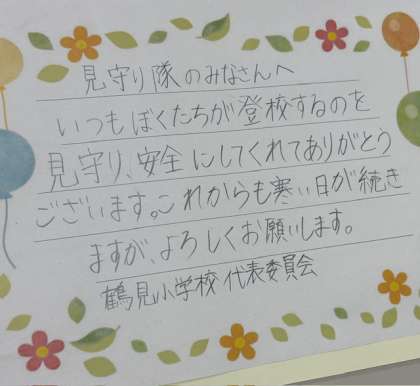 見守り隊のみなさんへ
いつもぼくたちが登校するのを
見守り、安全にしてくれてありがとう
ございます。これからも寒い日が続き
ますが、よろしくお願いします。
鶴見小学校 代表委員会